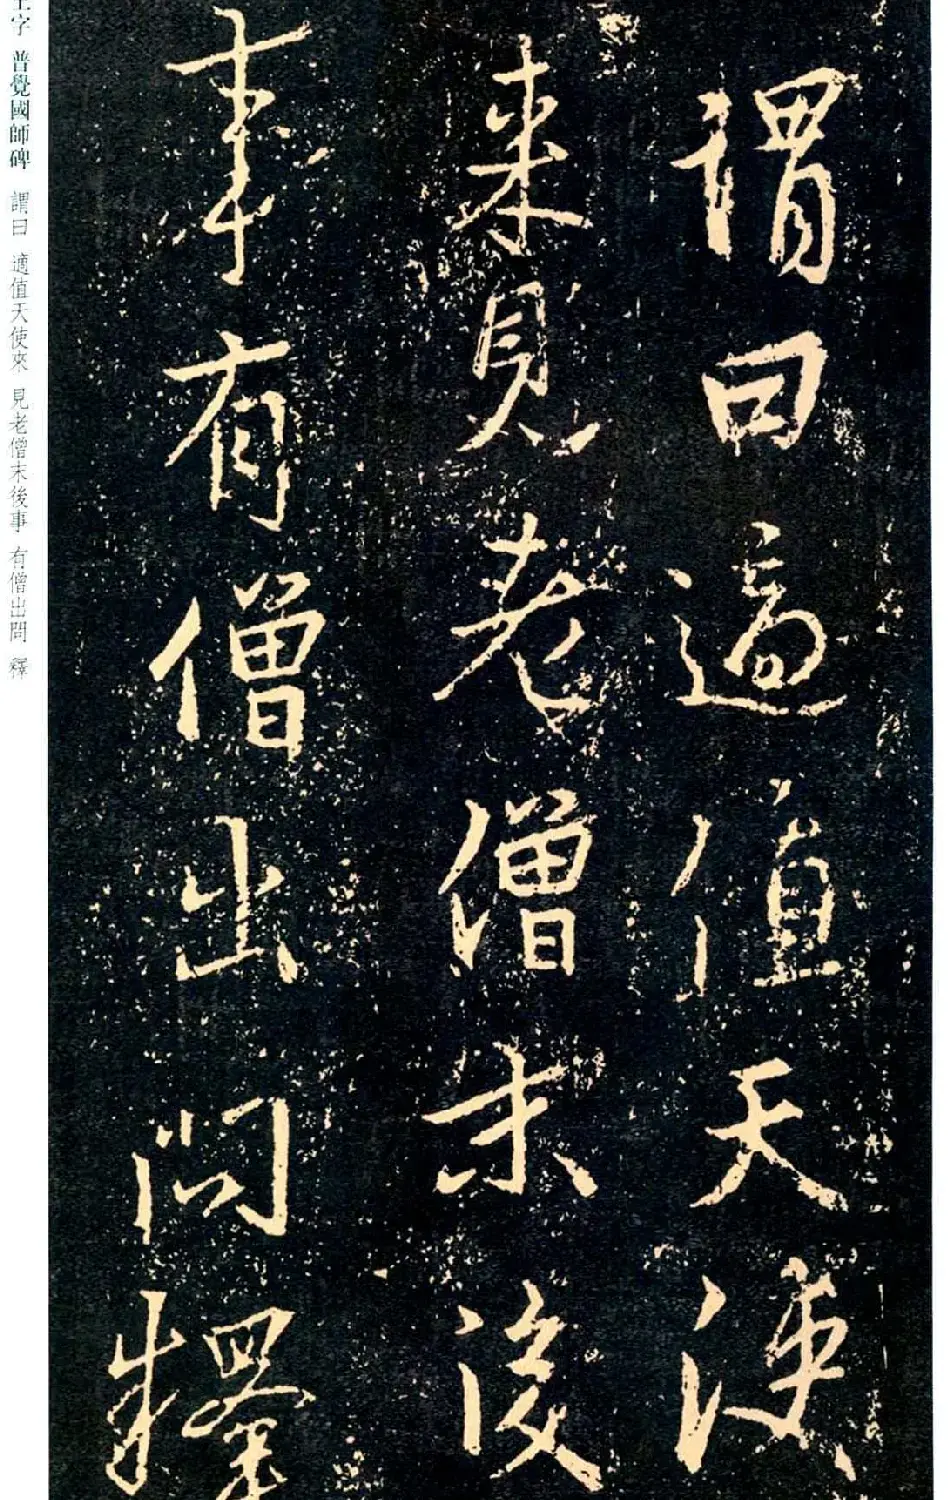 謂曰適值天使
來見老僧末後
事有僧出問釋
王字 普覺國師碑 謂曰 適值天使來 見老僧末後事 有僧出問 釋